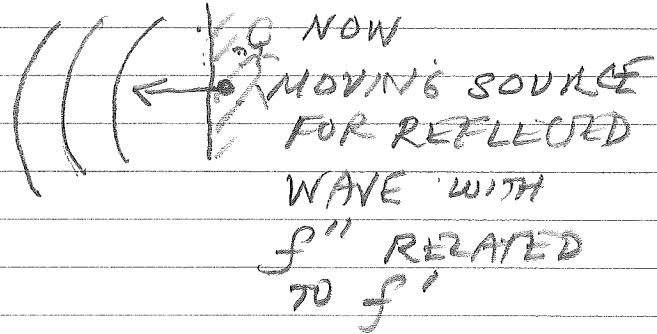 NOW
MOVING SOURCE
FOR REFLECTED
WAVE WITH
f" RELATED
TO f'